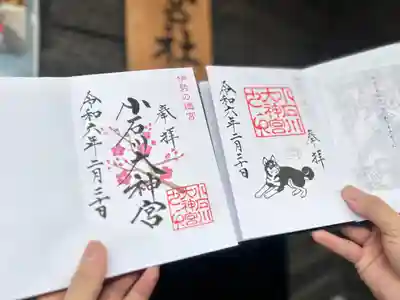 伊勢の遥宮
奉拝
小石川大神宮
令和六年二月二十日
小石川
大神宮
奉拝
令和六年二月二十日
小石川
大神宮
宮社